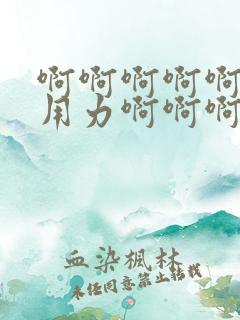 啊啊啊啊啊
用力啊啊啊
血染枫林
未经同意禁止转载